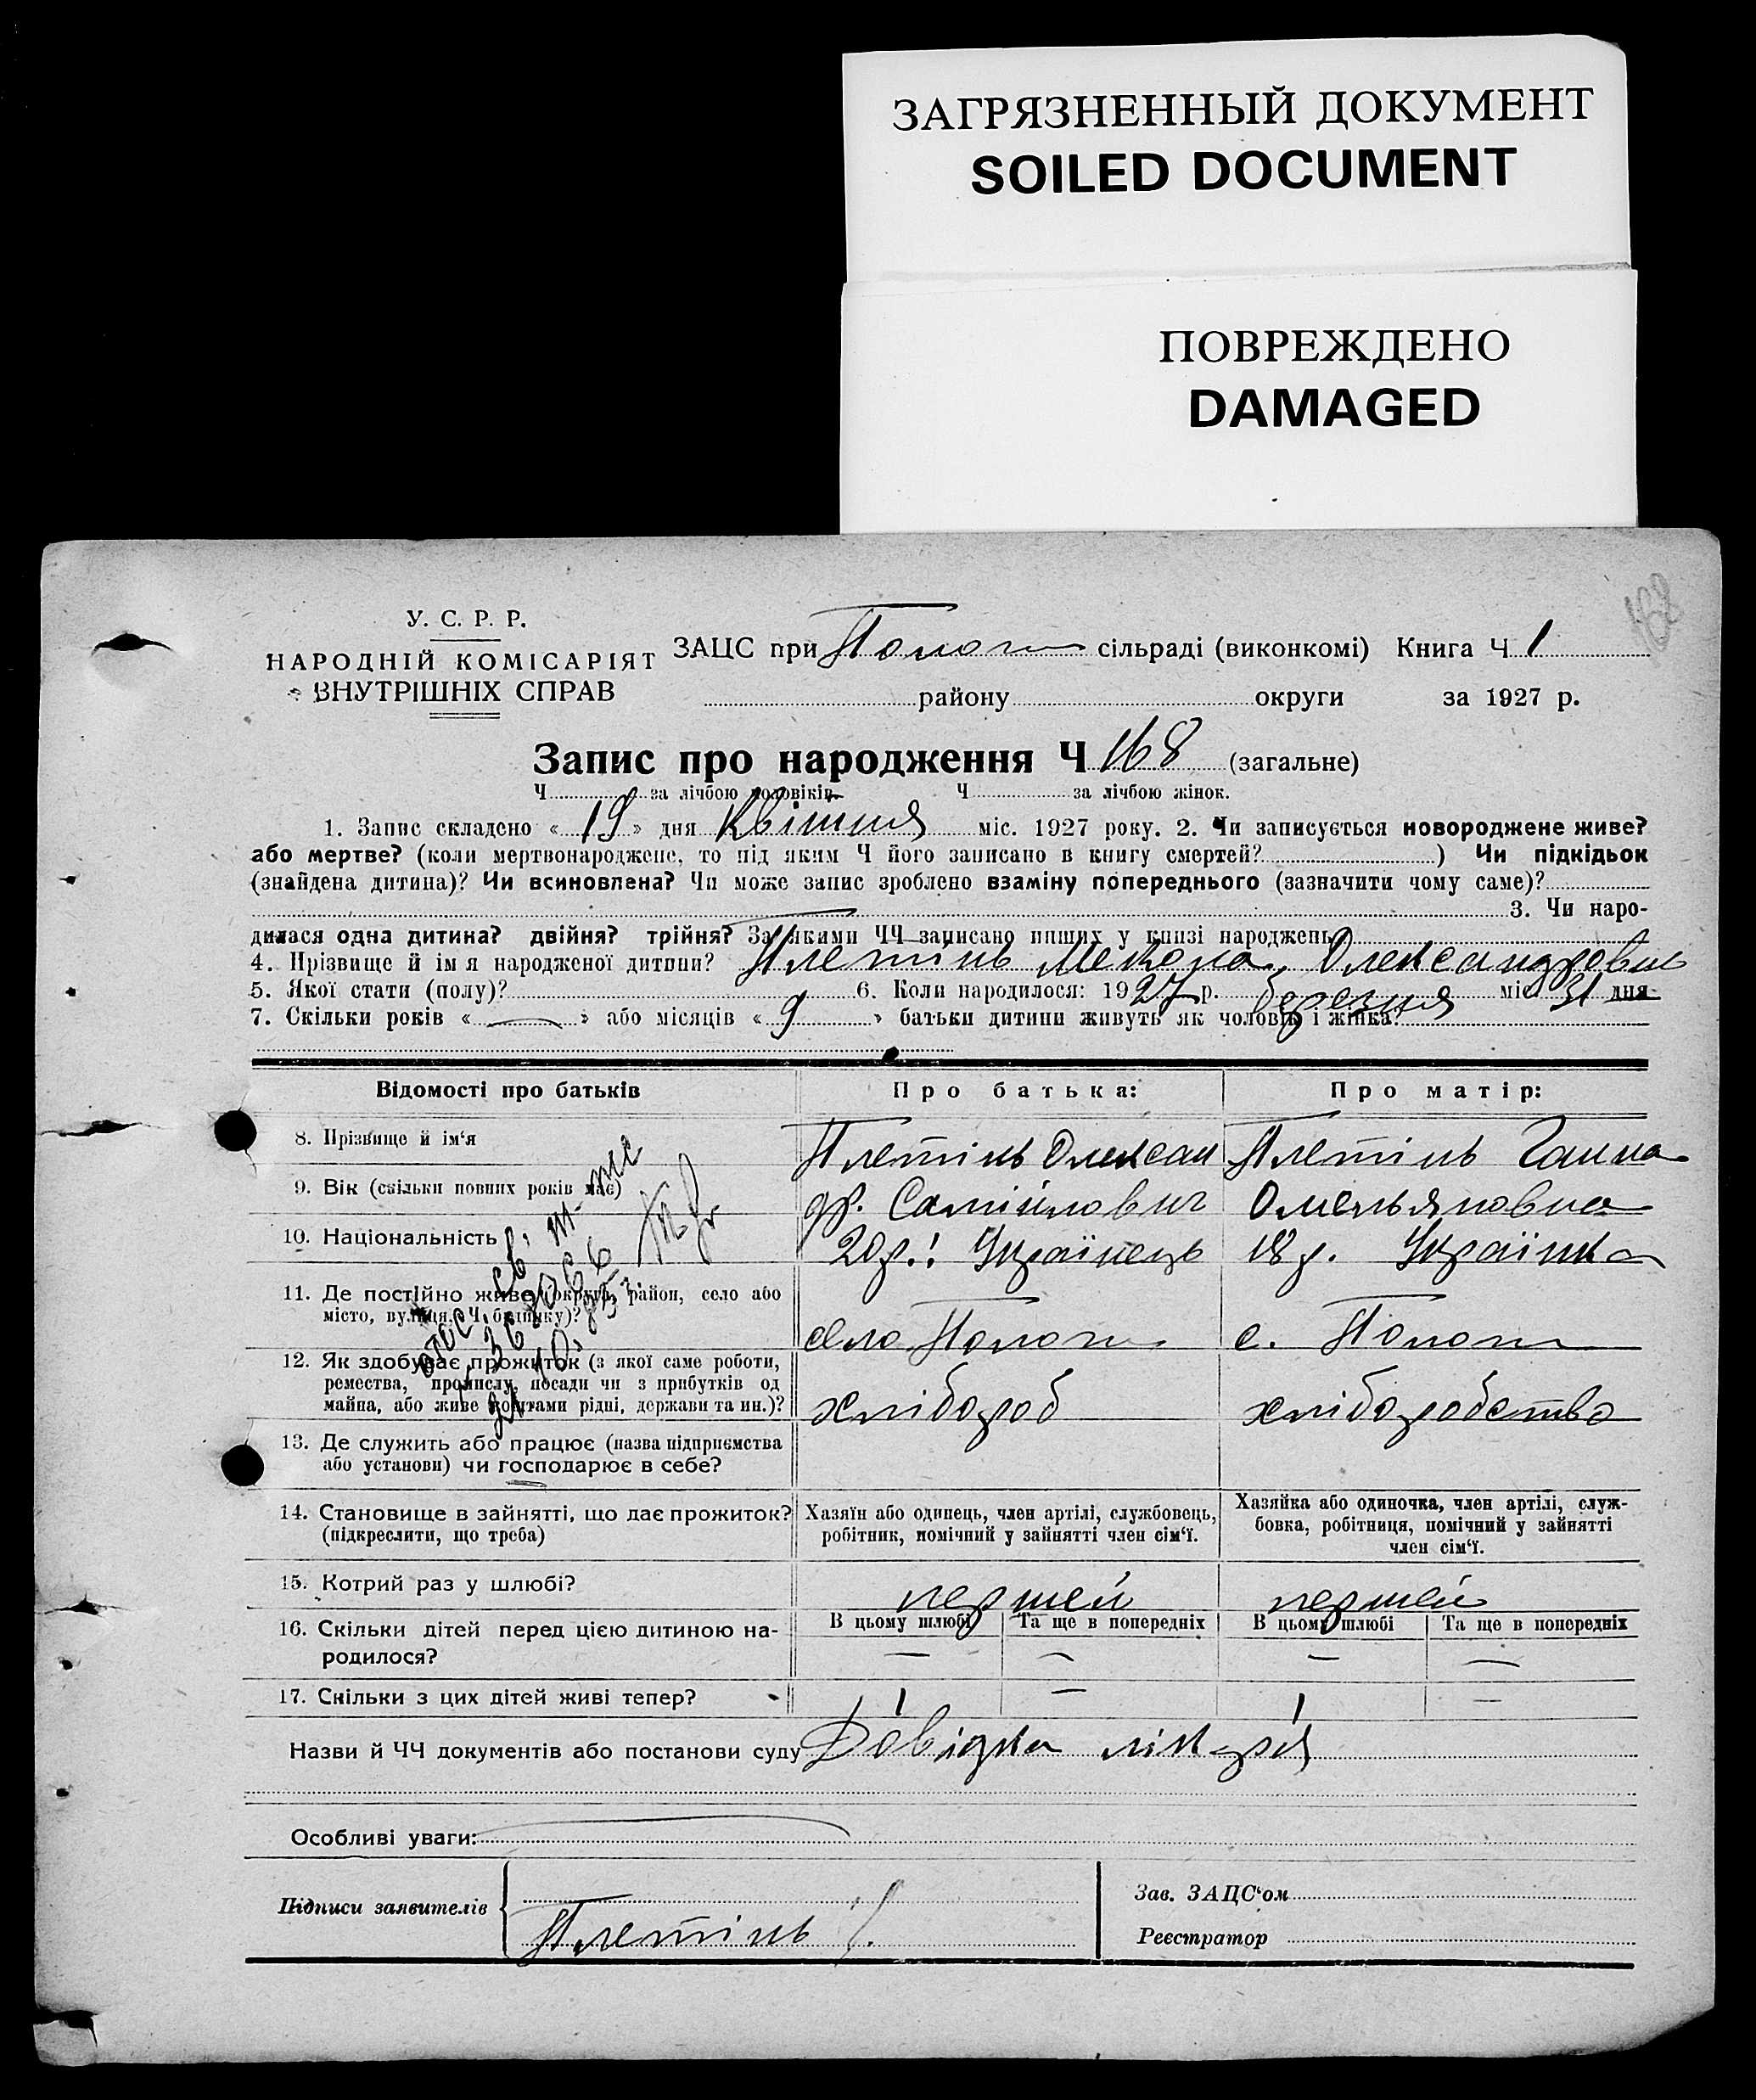 ЗАГРЯЗНЕННЫЙ ДОКУМЕНТ
SOILED DOCUMENT
ПОВРЕЖДЕНО
DAMAGED
168
У. С. Р. Р.
НАРОДНІЙ КОМІСАРІЯТ
ВНУТРІШНІХ СПРАВ
ЗАЦС при Пологи сільраді (виконкомі) Книга Ч 1
району округи за 1927 р.
Запис про народження Ч 168 (загальне)
Ч за лічбою чоловіків. Ч за лічбою жінок.
1. Запис складено « 19 » дня Квітня міс. 1927 року. 2. Чи записується новороджене живе?
або мертве? (коли мертвонароджене, то під яким Ч його записано в книгу смертей? ) Чи підкідьок
(знайдена дитина)? Чи всиновлена? Чи може запис зроблено взаміну попереднього (зазначити чому саме)?
3. Чи наро-
дилася одна дитина? двійня? трійня? За якими ЧЧ записано инших у книзі народжень?
4. Прізвище й ім я народженої дитини? Плетінь Олександровна
5. Якої стати (полу)? 6. Коли народилося: 1927 р. березня міс. 31 дня
7. Скільки років « — » або місяців « 9 » батьки дитини живуть як чоловік і жінка?
Відомості про батьків Про батька: Про матір:
8. Прізвище й ім‘я Плетінь Олексан Плетінь Ганна
9. Вік (скільки повних років має) др. Самійлович Омельяновна
10. Національність 20 р.: Українець 18 р. Українка
11. Де постійно живе (округа, район, село або
місто, вулиця, Ч. будинку)? село Пологи с. Пологи
12. Як здобуває прожиток (з якої саме роботи,
ремества, промислу, посади чи з прибутків од
майна, або живе коштами рідні, держави та ин.)? хлібороб хліборобство
13. Де служить або працює (назва підприємства
або установи) чи господарює в себе?
14. Становище в зайнятті, що дає прожиток?
(підкреслити, що треба)
Хазяїн або одинець, член артілі, службовець,
робітник, помічний у зайнятті член сім‘ї.
Хазяйка або одиночка, член артілі, служ-
бовка, робітниця, помічний у зайнятті
член сім‘ї.
15. Котрий раз у шлюбі? першей першей
16. Скільки дітей перед цією дитиною на-
родилося?
В цьому шлюбі Та ще в попередніх В цьому шлюбі Та ще в попередніх
— — — —
17. Скільки з цих дітей живі тепер? 1 — 1 —
Назви й ЧЧ документів або постанови суду Довідка лікаря
Особливі уваги:
Підписи заявителів
Плетінь
Зав. ЗАЦС‘ом
Реєстратор